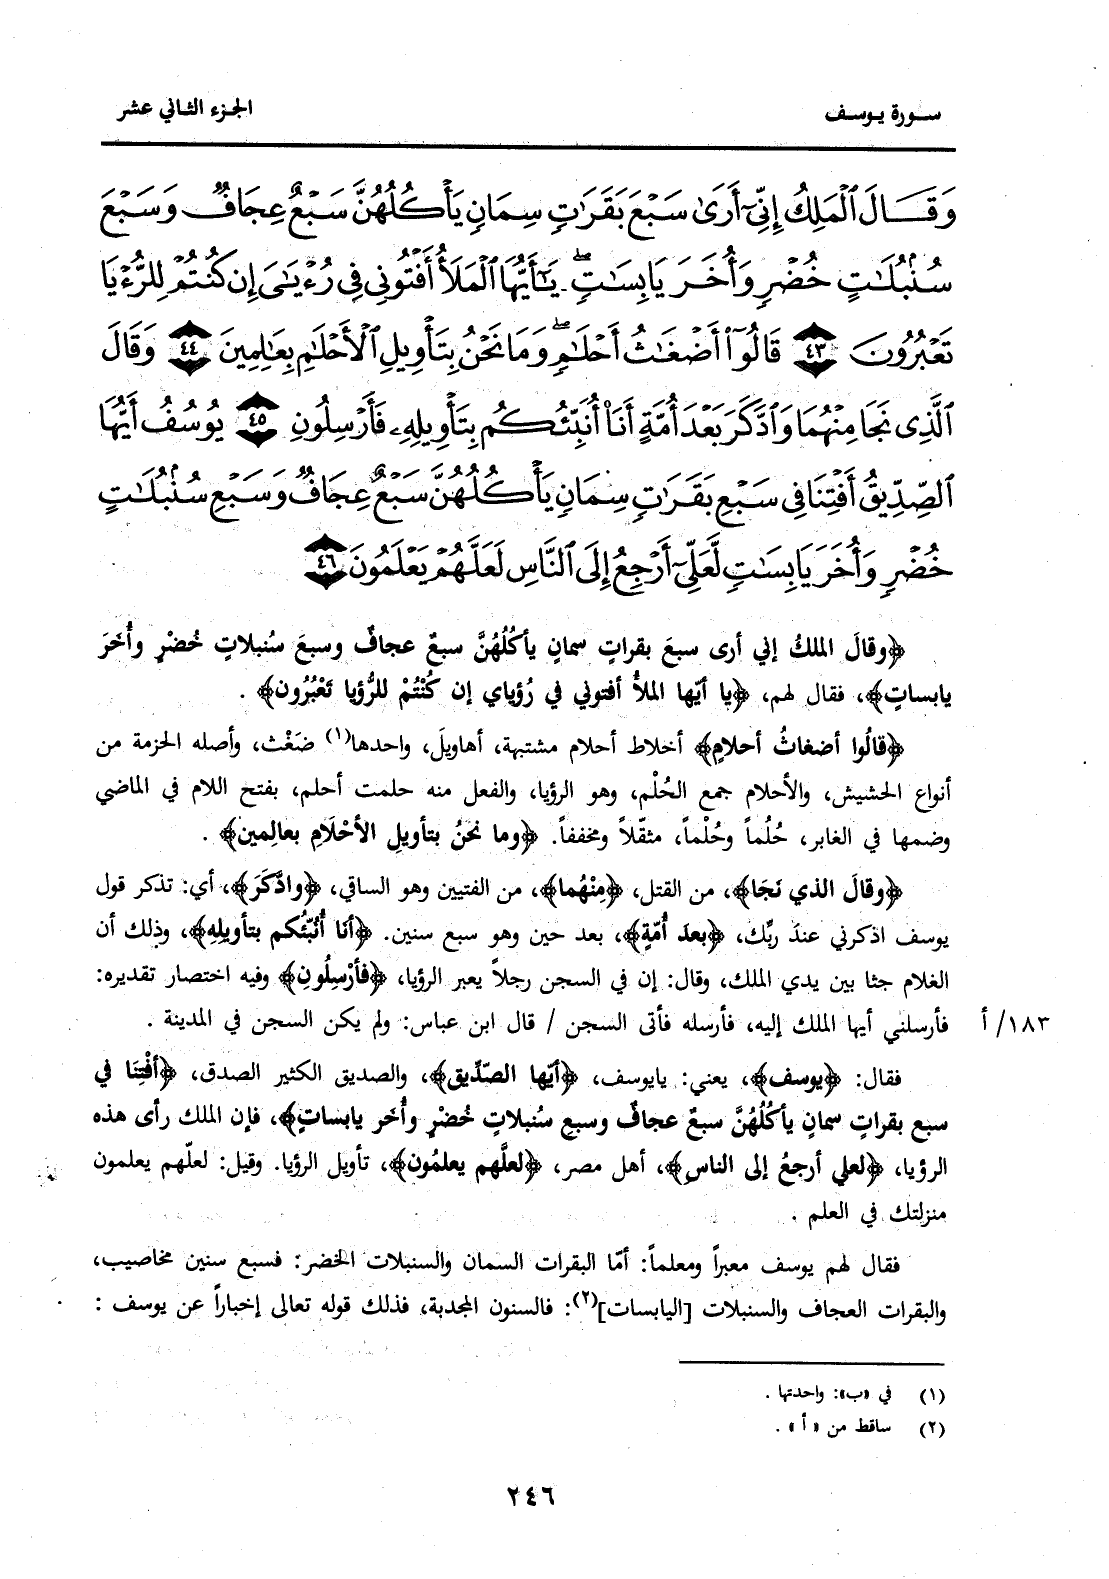 سورة يوسف
الجزء الثاني عشر
وَقَالَ ٱلْمَلِكُ إِنِّىٓ أَرَىٰ سَبْعَ بَقَرَٰتٍ سِمَانٍ يَأْكُلُهُنَّ سَبْعٌ عِجَافٌ وَسَبْعَ
سُنۢبُلَٰتٍ خُضْرٍ وَأُخَرَ يَابِسَٰتٍ ۖ يَٰٓأَيُّهَا ٱلْمَلَأُ أَفْتُونِى فِى رُءْيَٰىَ إِن كُنتُمْ لِلرُّءْيَا
تَعْبُرُونَ ٤٣ قَالُوٓا۟ أَضْغَٰثُ أَحْلَٰمٍ ۖ وَمَا نَحْنُ بِتَأْوِيلِ ٱلْأَحْلَٰمِ بِعَٰلِمِينَ ٤٤ وَقَالَ
ٱلَّذِى نَجَا مِنْهُمَا وَٱدَّكَرَ بَعْدَ أُمَّةٍ أَنَا۠ أُنَبِّئُكُم بِتَأْوِيلِهِۦ فَأَرْسِلُونِ ٤٥ يُوسُفُ أَيُّهَا
ٱلصِّدِّيقُ أَفْتِنَا فِى سَبْعِ بَقَرَٰتٍ سِمَانٍ يَأْكُلُهُنَّ سَبْعٌ عِجَافٌ وَسَبْعِ سُنۢبُلَٰتٍ
خُضْرٍ وَأُخَرَ يَابِسَٰتٍ لَّعَلِّىٓ أَرْجِعُ إِلَى ٱلنَّاسِ لَعَلَّهُمْ يَعْلَمُونَ ٤٦
﴿وقالَ الملكُ إني أرى سبعَ بقراتٍ سمانٍ يأكُلُهُنَّ سبعٌ عجافٌ وسبعَ سُنبلاتٍ خُضْرٍ وأُخَرَ
يابساتٍ﴾، فقال لهم، ﴿يا أيّها الملأُ أفتوني في رُؤياي إن كُنْتُمْ للرُّؤيا تَعْبُرُون﴾ .
﴿قالُوا أضغاثُ أحلامٍ﴾ أخلاط أحلام مشتبهة، أهاويلَ، واحدها(١) ضَغْث، وأصله الحزمة من
أنواع الحشيش، والأحلام جمع الحُلْم، وهو الرؤيا، والفعل منه حلمت أحلم، بفتح اللام في الماضي
وضمها في الغابر، حُلُماً وحُلْماً، مثقّلاً ومخففاً. ﴿وما نحنُ بتأويلِ الأحْلَامِ بعالِمين﴾ .
﴿وقالَ الذي نَجَا﴾، من القتل، ﴿مِنْهُما﴾، من الفتيين وهو الساقي، ﴿وادَّكَرَ﴾، أي: تذكر قول
يوسف اذكرني عندَ ربِّك، ﴿بعدَ أُمّةٍ﴾، بعد حين وهو سبع سنين. ﴿أنَا أُنَبِّئُكم بتأويلِهِ﴾، وذلك أن
الغلام جثا بين يدي الملك، وقال: إن في السجن رجلاً يعبر الرؤيا، ﴿فأرْسِلُونِ﴾ وفيه اختصار تقديره:
فأرسلني أيها الملك إليه، فأرسله فأتى السجن / قال ابن عباس: ولم يكن السجن في المدينة .
١٨٣/ أ
فقال: ﴿يوسف﴾، يعني: يايوسف، ﴿أيّها الصّدّيق﴾، والصديق الكثير الصدق، ﴿أفْتِنَا في
سبع بقراتٍ سمانٍ يأكُلُهُنَّ سبعٌ عجافٌ وسبعِ سُنبلاتٍ خُضْرٍ وأُخر يابساتٍ﴾، فإن الملك رأى هذه
الرؤيا، ﴿لعلي أرجعُ إلى الناسِ﴾، أهل مصر، ﴿لعلَّهم يعلمُون﴾، تأويل الرؤيا. وقيل: لعلّهم يعلمون
منزلتك في العلم .
فقال لهم يوسف معبراً ومعلماً: أمّا البقرات السمان والسنبلات الخضر: فسبع سنين مخاصيب،
والبقرات العجاف والسنبلات [اليابسات](٢): فالسنون المجدبة، فذلك قوله تعالى إخباراً عن يوسف :
(١) في «ب»: واحدتها .
(٢) ساقط من «أ» .
٢٤٦